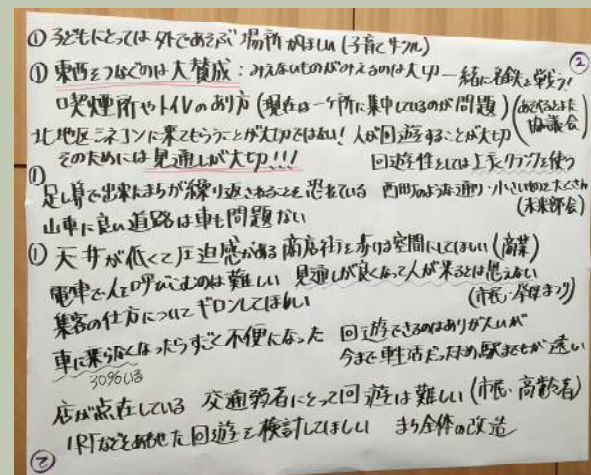 ②
① 子どもにとっては外であそぶ場所がほしい (子育てサークル)
① 東西をつなぐのは大賛成:みえないものがみえるのは大切 一緒に名鉄と戦う!
喫煙所やトイレのあり方 (現在は一ヶ所に集中しているのが問題)
協議会)
北地区 シネコンに来てもらうことが大切ではない! 人が回遊することが大切
そのためには見通しが大切!!! 回遊性としては
を使う
①
足し算で出来たまちが繰り返されることを恐れている 西町のような通り・小さいものたくさん
(未来部会)
山車に良い道路は車も問題ない
① 天井が低くて圧迫感がある 商店街を歩ける空間にしてほしい (商業)
電車で人を呼びこむのは難しい 見通しが良くなって人が来るとは思えない
(市民・挙母まつり)
集客の仕方についてギロンしてほしい
車に乗らなくなったらすごく不便になった 回遊できるのはありがたいが
30%いる 今まで車生活だったため駅までが遠い
店が点在している 交通弱者にとって回遊は難しい (市民・高齢者)
LRTなどとあわせた回遊を検討してほしい まち全体の改造
②